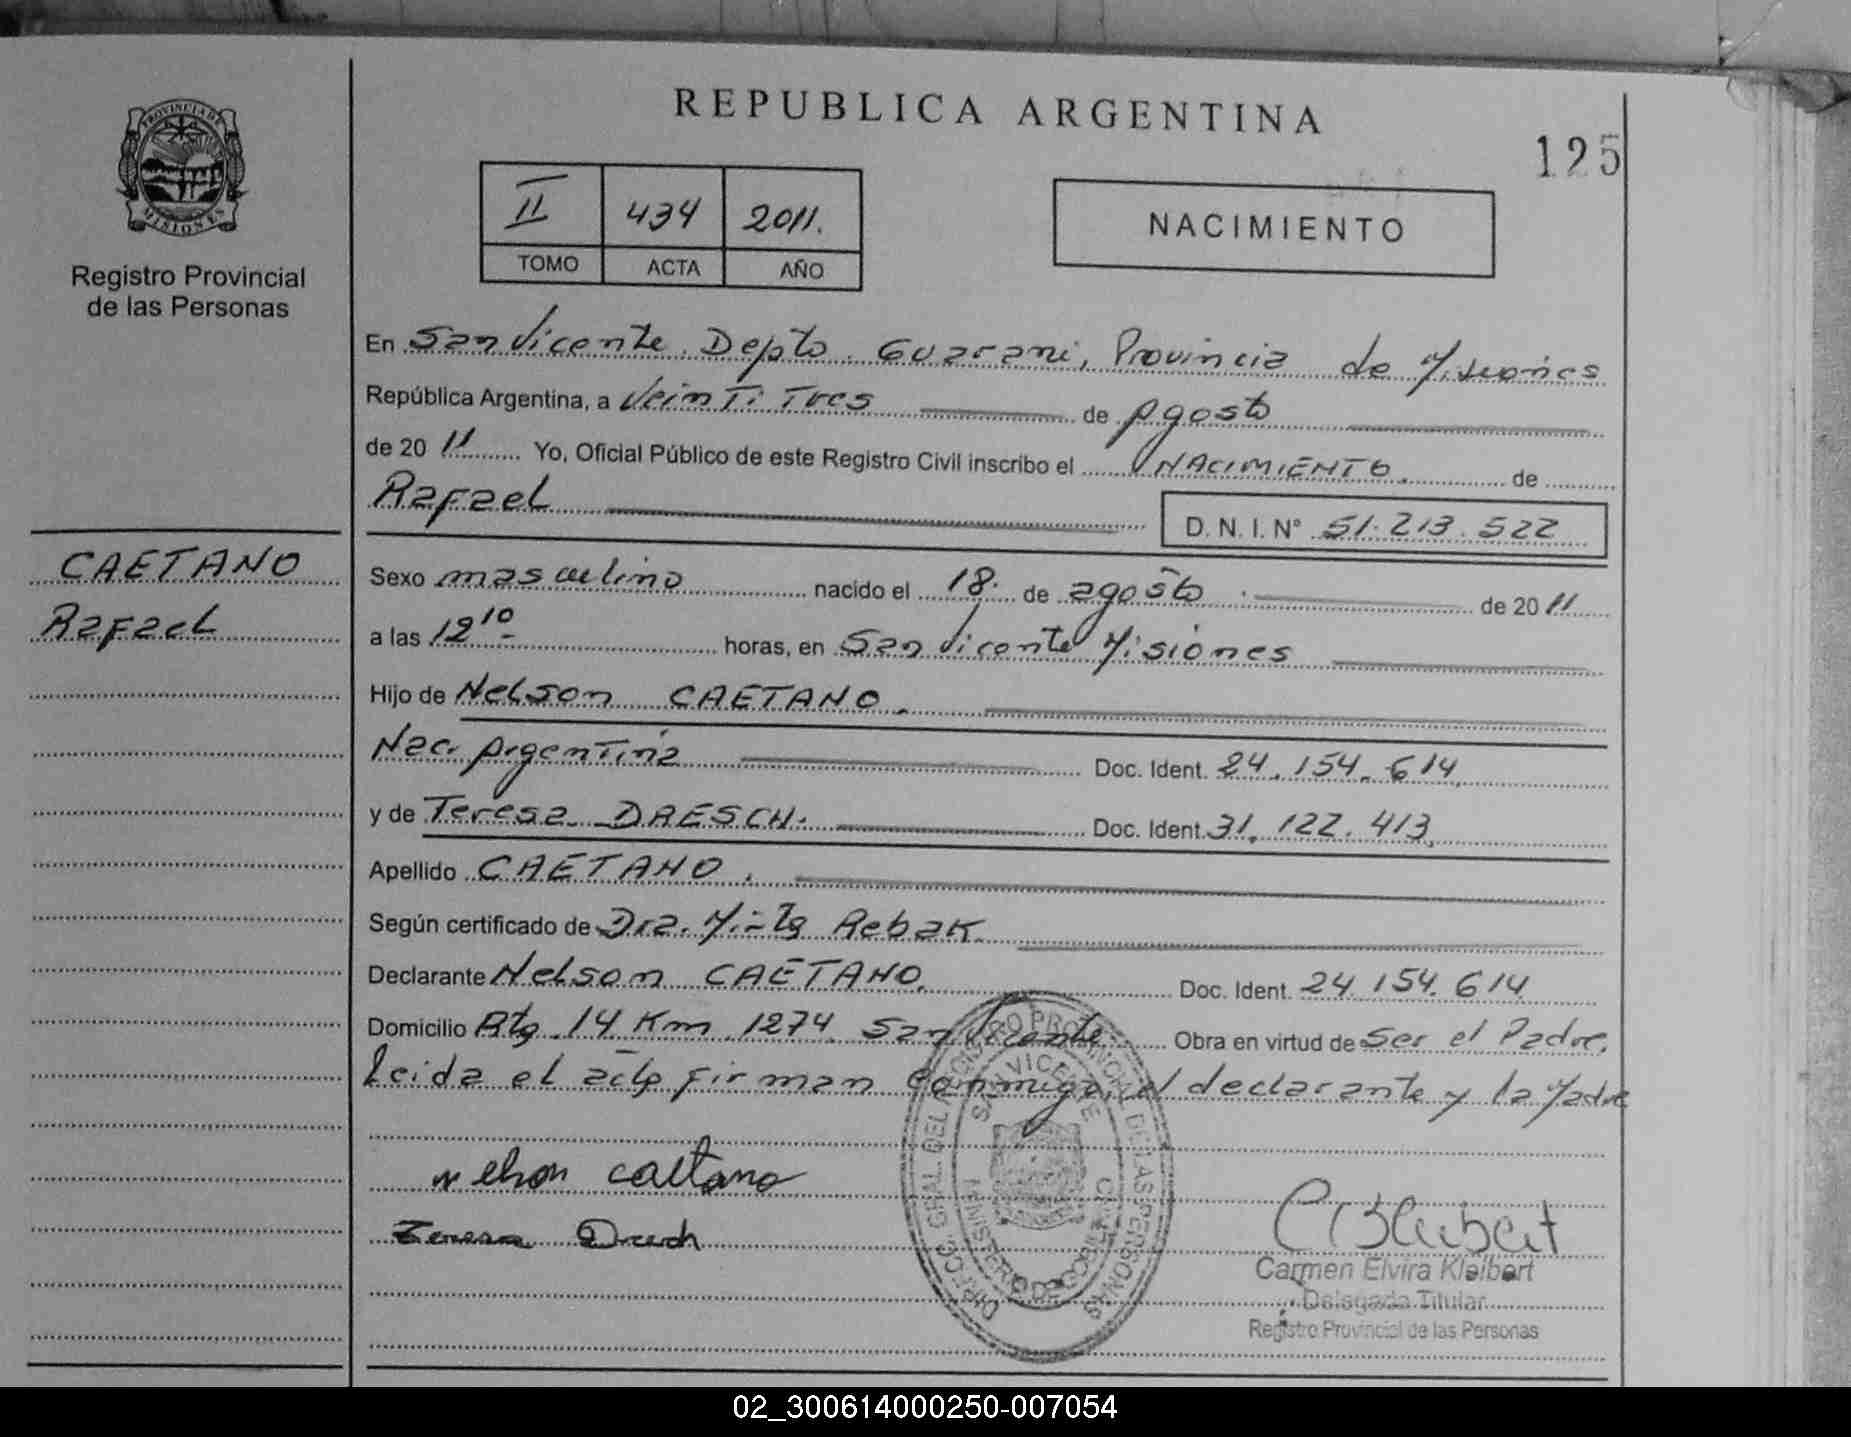 REPUBLICA ARGENTINA
125
PROVINCIA DE
MISIONES
Registro Provincial
de las Personas
II 434 2011.
TOMO ACTA AÑO
NACIMIENTO
En San Vicente. Depto. Guarani, Provincia de Misiones
República Argentina, a Veinti Tres de Agosto
de 2011 Yo, Oficial Público de este Registro Civil inscribo el NACIMIENTO. de
Rafael
D. N. I. N° 51.213.522
CAETANO
Rafael
Sexo masculino nacido el 18 de agosto de 2011
a las 12 10 horas, en San Vicente Misiones
Hijo de Nelson CAETANO.
Nac. Argentina Doc. Ident. 24.154.614
y de Teresa DRESCH. Doc. Ident. 31.122.413
Apellido CAETANO.
Según certificado de Dra. Rebak
Declarante Nelson CAETANO. Doc. Ident. 24.154.614
Domicilio Rta 14 Km 1274 San Vicente Obra en virtud de Ser el Padre.
Leida el acta firman conmigo, el declarante y la Madre
Nelson Caetano
Teresa Dresch
DIRECC. GRAL. DEL REGISTRO PROVINCIAL DE LAS PERSONAS
SAN VICENTE
MINISTERIO DE GOBIERNO
Carmen Elvira Kleibert
Delegada Titular
Registro Provincial de las Personas
02_300614000250-007054